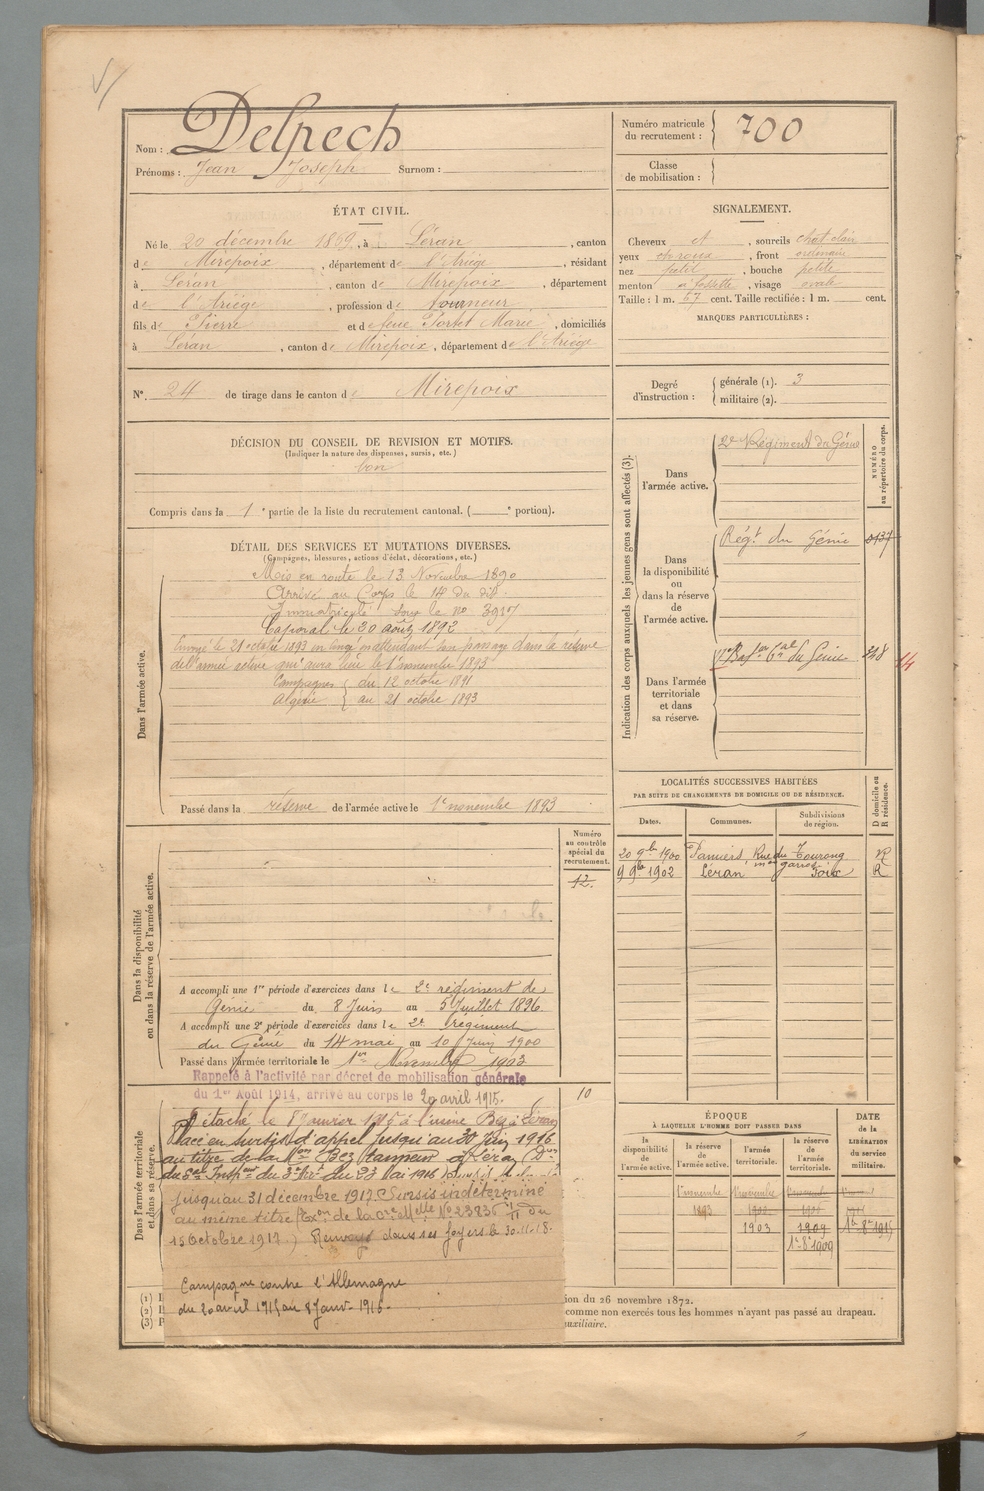 Nom : Delpech
Prénoms : Jean Joseph Surnom :
Numéro matricule du recrutement : 700
Classe de mobilisation :
ÉTAT CIVIL.
Né le 20 décembre 1869, à Léran, canton
de Mirepoix, département de l'Ariège, résidant
à Léran, canton de Mirepoix, département
de l'Ariège, profession de Tourneur
fils de Pierre et de feue Portet Marie, domiciliés
à Léran, canton de Mirepoix, département de l'Ariège
N° 24 de tirage dans le canton de Mirepoix
SIGNALEMENT.
Cheveux et, sourcils chat-clair
yeux, front ordinaire
nez petit, bouche petite
menton à fossette, visage ovale
Taille : 1 m. 67 cent. Taille rectifiée : 1 m. cent.
MARQUES PARTICULIÈRES :
Degré d'instruction : générale (1). 3
militaire (2).
DÉCISION DU CONSEIL DE REVISION ET MOTIFS.
(Indiquer la nature des dispenses, sursis, etc.)
bon
Compris dans la 1e partie de la liste du recrutement cantonal. (e portion).
DÉTAIL DES SERVICES ET MUTATIONS DIVERSES.
(Campagnes, blessures, actions d'éclat, décorations, etc.)
Dans l'armée active.
Mis en route le 13 Novembre 1890
Arrivé au Corps le 14 du dit
Immatriculé sous le no 3917
Caporal le 30 août 1892
Envoyé le 21 octobre 1893 en congé en attendant son passage dans la réserve
de l'armée active qui aura lieu le 1er novembre 1893
Campagnes du 12 octobre 1891
Algérie au 21 octobre 1893
Passé dans la réserve de l'armée active le 1er novembre 1893
Indication des corps auxquels les jeunes gens sont affectés (3).
NUMÉRO au répertoire du corps.
Dans l'armée active.
2e Régiment du Génie
Dans la disponibilité ou dans la réserve de l'armée active.
Régt du Génie 0137
Dans l'armée territoriale et dans sa réserve.
du Génie 248 14
LOCALITÉS SUCCESSIVES HABITÉES
PAR SUITE DE CHANGEMENTS DE DOMICILE OU DE RÉSIDENCE.
D domicile ou R résidence.
Dates. Communes. Subdivisions de région.
20 9bre 1900 Pamiers, Rue du Tourong R
9 9bre 1902 Léran Foix R
Dans la disponibilité ou dans la réserve de l'armée active.
Numéro au contrôle spécial du recrutement.
12.
A accompli une 1re période d'exercices dans le 2e régiment de
Génie du 8 Juin au 5 Juillet 1896
A accompli une 2e période d'exercices dans le 2e régiment
du Génie du 14 mai au 10 Juin 1900
Passé dans l'armée territoriale le 1er Novembre 1903
Rappelé à l'activité par décret de mobilisation générale
du 1er Août 1914, arrivé au corps le 20 avril 1915.
10
Dans l'armée territoriale et dans sa réserve.
Détaché le 8 Janvier 1916 à l'usine Bez à Léran
Placé en sursis d'appel jusqu'au 30 Juin 1916
au titre de la Mon Bez tanneur à Léran
jusqu'au 31 décembre 1917. Sursis indéterminé
au même titre
15 Octobre 1917.) Renvoyé dans ses foyers le 30-11-18.
Campagne contre l'Allemagne
du 20 avril 1915 au 8 Janv. 1916.
ÉPOQUE
À LAQUELLE L'HOMME DOIT PASSER DANS
DATE de la LIBÉRATION du service militaire.
la disponibilité de l'armée active.
la réserve de l'armée active.
l'armée territoriale.
la réserve de l'armée territoriale.
1er novembre 1er novembre
1893 1900
1903 1909
1er 8bre 1909
(1)
(2)
(3)
ion du 26 novembre 1872.
comme non exercés tous les hommes n'ayant pas passé au drapeau.
auxiliaire.